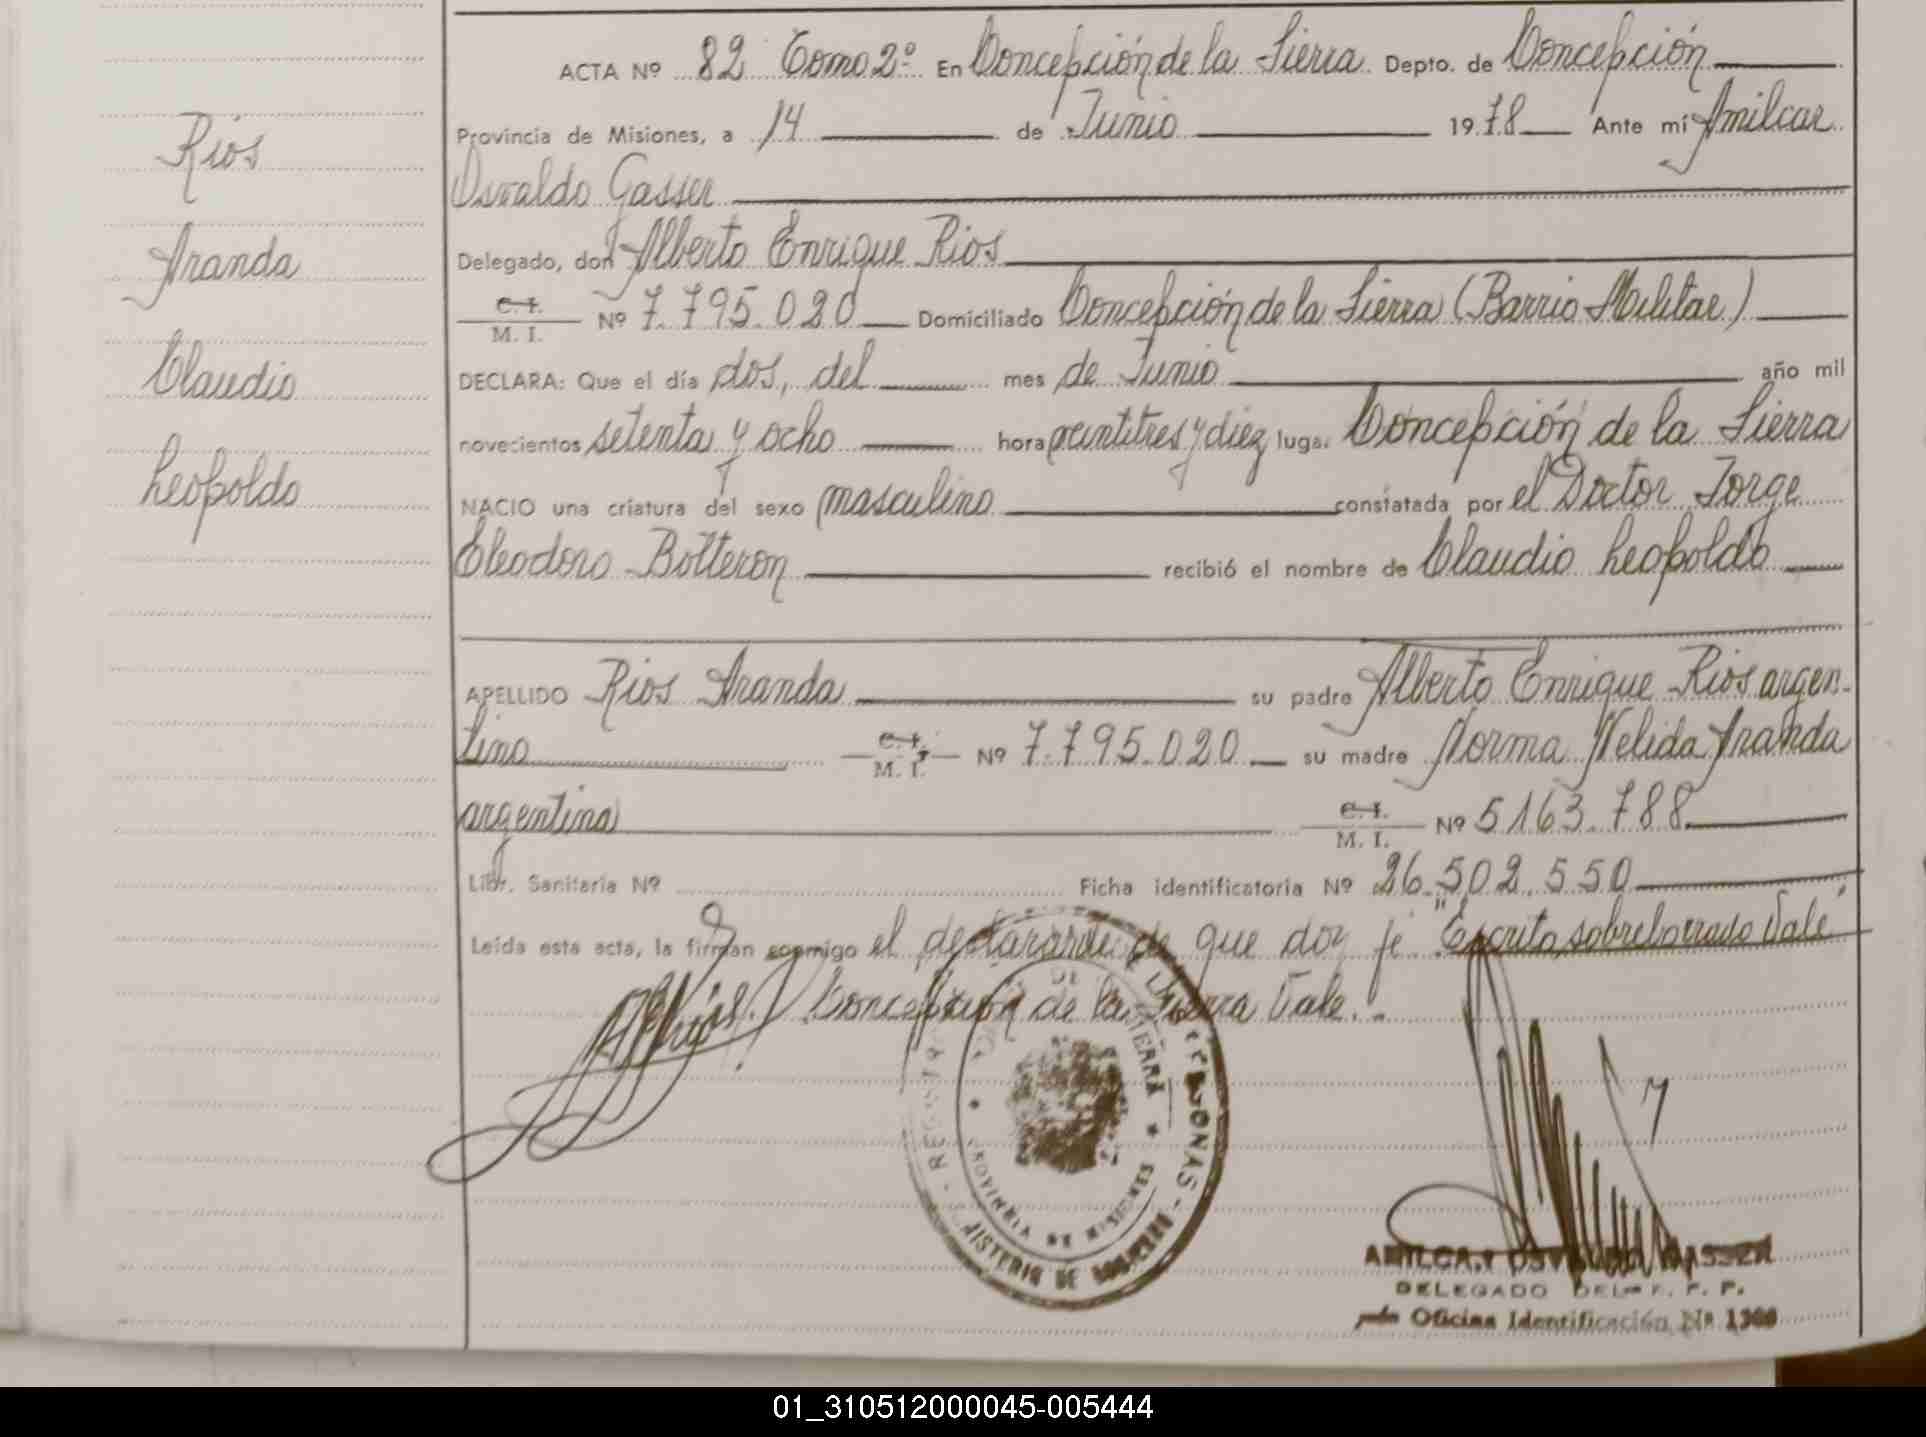 ACTA Nº 82 Tomo 2º En Concepción de la Sierra Depto. de Concepción
Provincia de Misiones, a 14 de Junio 1978 Ante mí Amilcar
Osvaldo Gasser
Delegado, don Alberto Enrique Rios
C. I.
M. I. Nº 7.795.020 Domiciliado Concepción de la Sierra (Barrio Militar)
DECLARA: Que el día dos, del mes de Junio año mil
novecientos setenta y ocho hora veintitres y diez lugar Concepción de la Sierra
NACIO una criatura del sexo masculino constatada por el Doctor Jorge
Eleodoro Bolteron recibió el nombre de Claudio Leopoldo
APELLIDO Rios Aranda su padre Alberto Enrique Rios argen-
tino C. I. M. I. Nº 7.795.020 su madre Norma Nelida Aranda
argentina C. I. M. I. Nº 5163.788
Libr. Sanitaria Nº Ficha identificatoria Nº 26.502.550
Leída esta acta, la firman conmigo el declarante de que doy fe "Escrito sobreborrado Vale"
Concepción de la Sierra Vale.
Rios
Aranda
Claudio
Leopoldo
PROVINCIA DE MISIONES
AMILCAR OSVALDO GASSER
DELEGADO DEL R. P. P.
Oficina Identificación Nº 1300
01_310512000045-005444